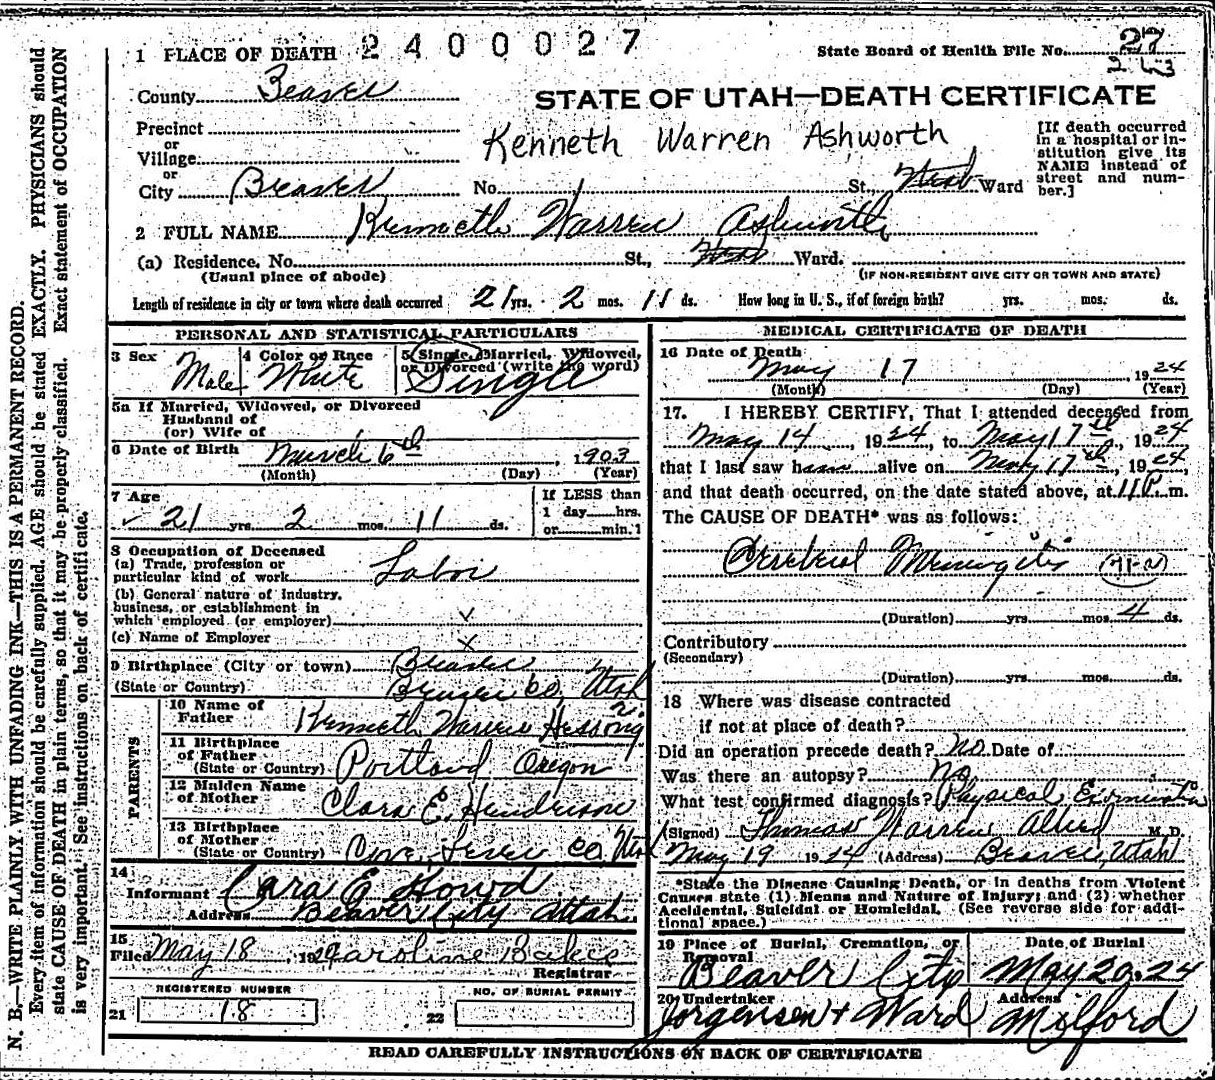 1 PLACE OF DEATH 2400027
State Board of Health File No. 27
243
County Beaver
STATE OF UTAH—DEATH CERTIFICATE
Precinct
or
Village
or
City Beaver No. St., Ward
Kenneth Warren Ashworth
[If death occurred
in a hospital or in-
stitution give its
NAME instead of
street and num-
ber.]
2 FULL NAME Kenneth Warren Ashworth
(a) Residence. No. St., Ward.
(Usual place of abode) (IF NON-RESIDENT GIVE CITY OR TOWN AND STATE)
Length of residence in city or town where death occurred 21 yrs. 2 mos. 11 ds. How long in U. S., if of foreign birth? yrs. mos. ds.
PERSONAL AND STATISTICAL PARTICULARS
3 Sex Male
4 Color or Race White
5 Single, Married, Widowed,
or Divorced (write the word)
Single
5a If Married, Widowed, or Divorced
Husband of
(or) Wife of
6 Date of Birth March 6th, 1903
(Month) (Day) (Year)
7 Age
21 yrs. 2 mos. 11 ds.
If LESS than
1 day hrs.
or min.?
8 Occupation of Deceased
(a) Trade, profession or
particular kind of work Labor
(b) General nature of industry,
business, or establishment in
which employed (or employer) x
(c) Name of Employer x
9 Birthplace (City or town) Beaver
(State or Country) Beaver Co. Utah
PARENTS
10 Name of
Father Kenneth Warren
11 Birthplace
of Father
(State or Country) Portland Oregon
12 Maiden Name
of Mother Clara E.
13 Birthplace
of Mother
(State or Country) Cove Co. Utah
14
Informant E
Address Beaver City Utah
15
Filed May 18, 1924 Caroline
Registrar
REGISTERED NUMBER
21 18
NO. OF BURIAL PERMIT
22
MEDICAL CERTIFICATE OF DEATH
16 Date of Death
May 17 1924
(Month) (Day) (Year)
17. I HEREBY CERTIFY, That I attended deceased from
May 14, 1924, to May 17th, 1924
that I last saw him alive on May 17th, 1924
and that death occurred, on the date stated above, at 11 P. m.
The CAUSE OF DEATH* was as follows:
Cerebral Meningitis
(Duration) yrs. mos. 4 ds.
Contributory
(Secondary)
(Duration) yrs. mos. ds.
18 Where was disease contracted
if not at place of death?
Did an operation precede death? No Date of
Was there an autopsy? No
What test confirmed diagnosis? Physical
(Signed) Thomas Warren Allred M. D.
May 19 1924 (Address) Beaver, Utah
*State the Disease Causing Death, or in deaths from Violent
Causes state (1) Means and Nature of Injury; and (2) whether
Accidental, Suicidal or Homicidal. (See reverse side for addi-
tional space.)
19 Place of Burial, Cremation, or
Removal
Beaver City
Date of Burial
May 20, 24
20 Undertaker
Jorgensen & Ward
Address
Milford
READ CAREFULLY INSTRUCTIONS ON BACK OF CERTIFICATE
N. B.—WRITE PLAINLY WITH UNFADING INK—THIS IS A PERMANENT RECORD.
Every item of information should be carefully supplied. AGE should be stated EXACTLY. PHYSICIANS should
state CAUSE OF DEATH in plain terms, so that it may be properly classified. Exact statement of OCCUPATION
is very important. See instructions on back of certificate.